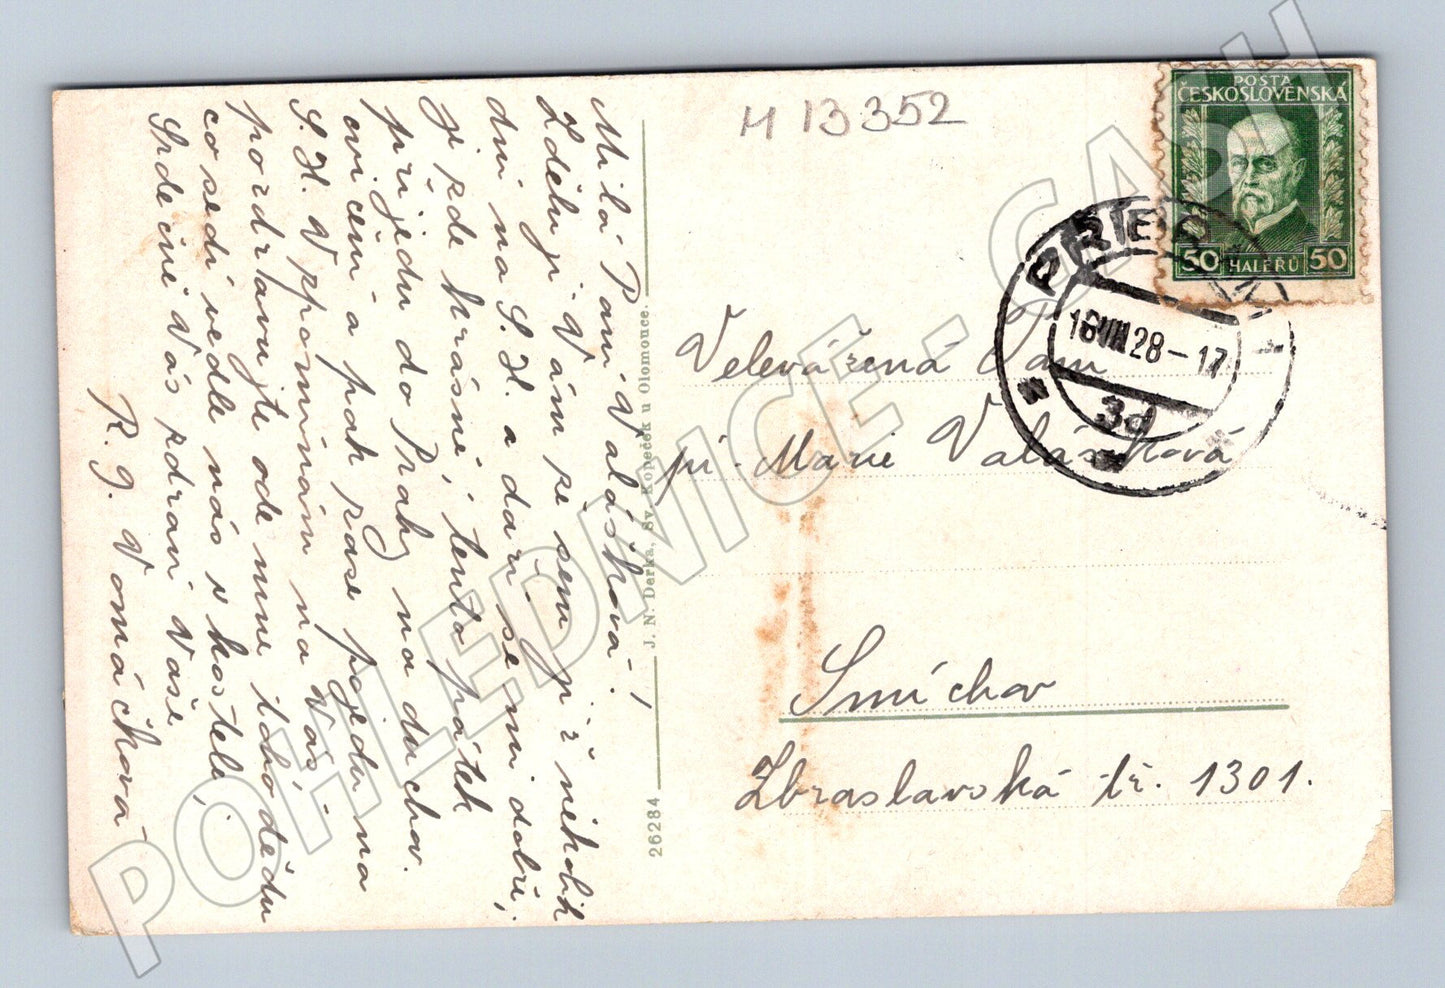 M 13352
POSTA
ČESKOSLOVENSKÁ
50 HALÉŘŮ 50
PŘEROV
16.VIII.28-17
3d
Milá Paní Valášková!
Zděluji Vám že sem již několik
dní na S. H. a daří se mi dobře,
je zde krásně, tento pátek
přijedu do Prahy na duchov.
cvičení a pak zase pojedu na
S. H. Vzpomínám na Vás,
pozdravujte ode mne toho dědu
co sedí vedle nás v kostele,
Srdečně Vás zdraví Vaše
R. J. Vomáčkova
26284
J. N. Derka, Sv. Kopeček u Olomouce.
Velevážená Paní
pí. Marie Valášková
Smíchov
Zbraslavská tř. 1301.
POHLEDNICE - CASH